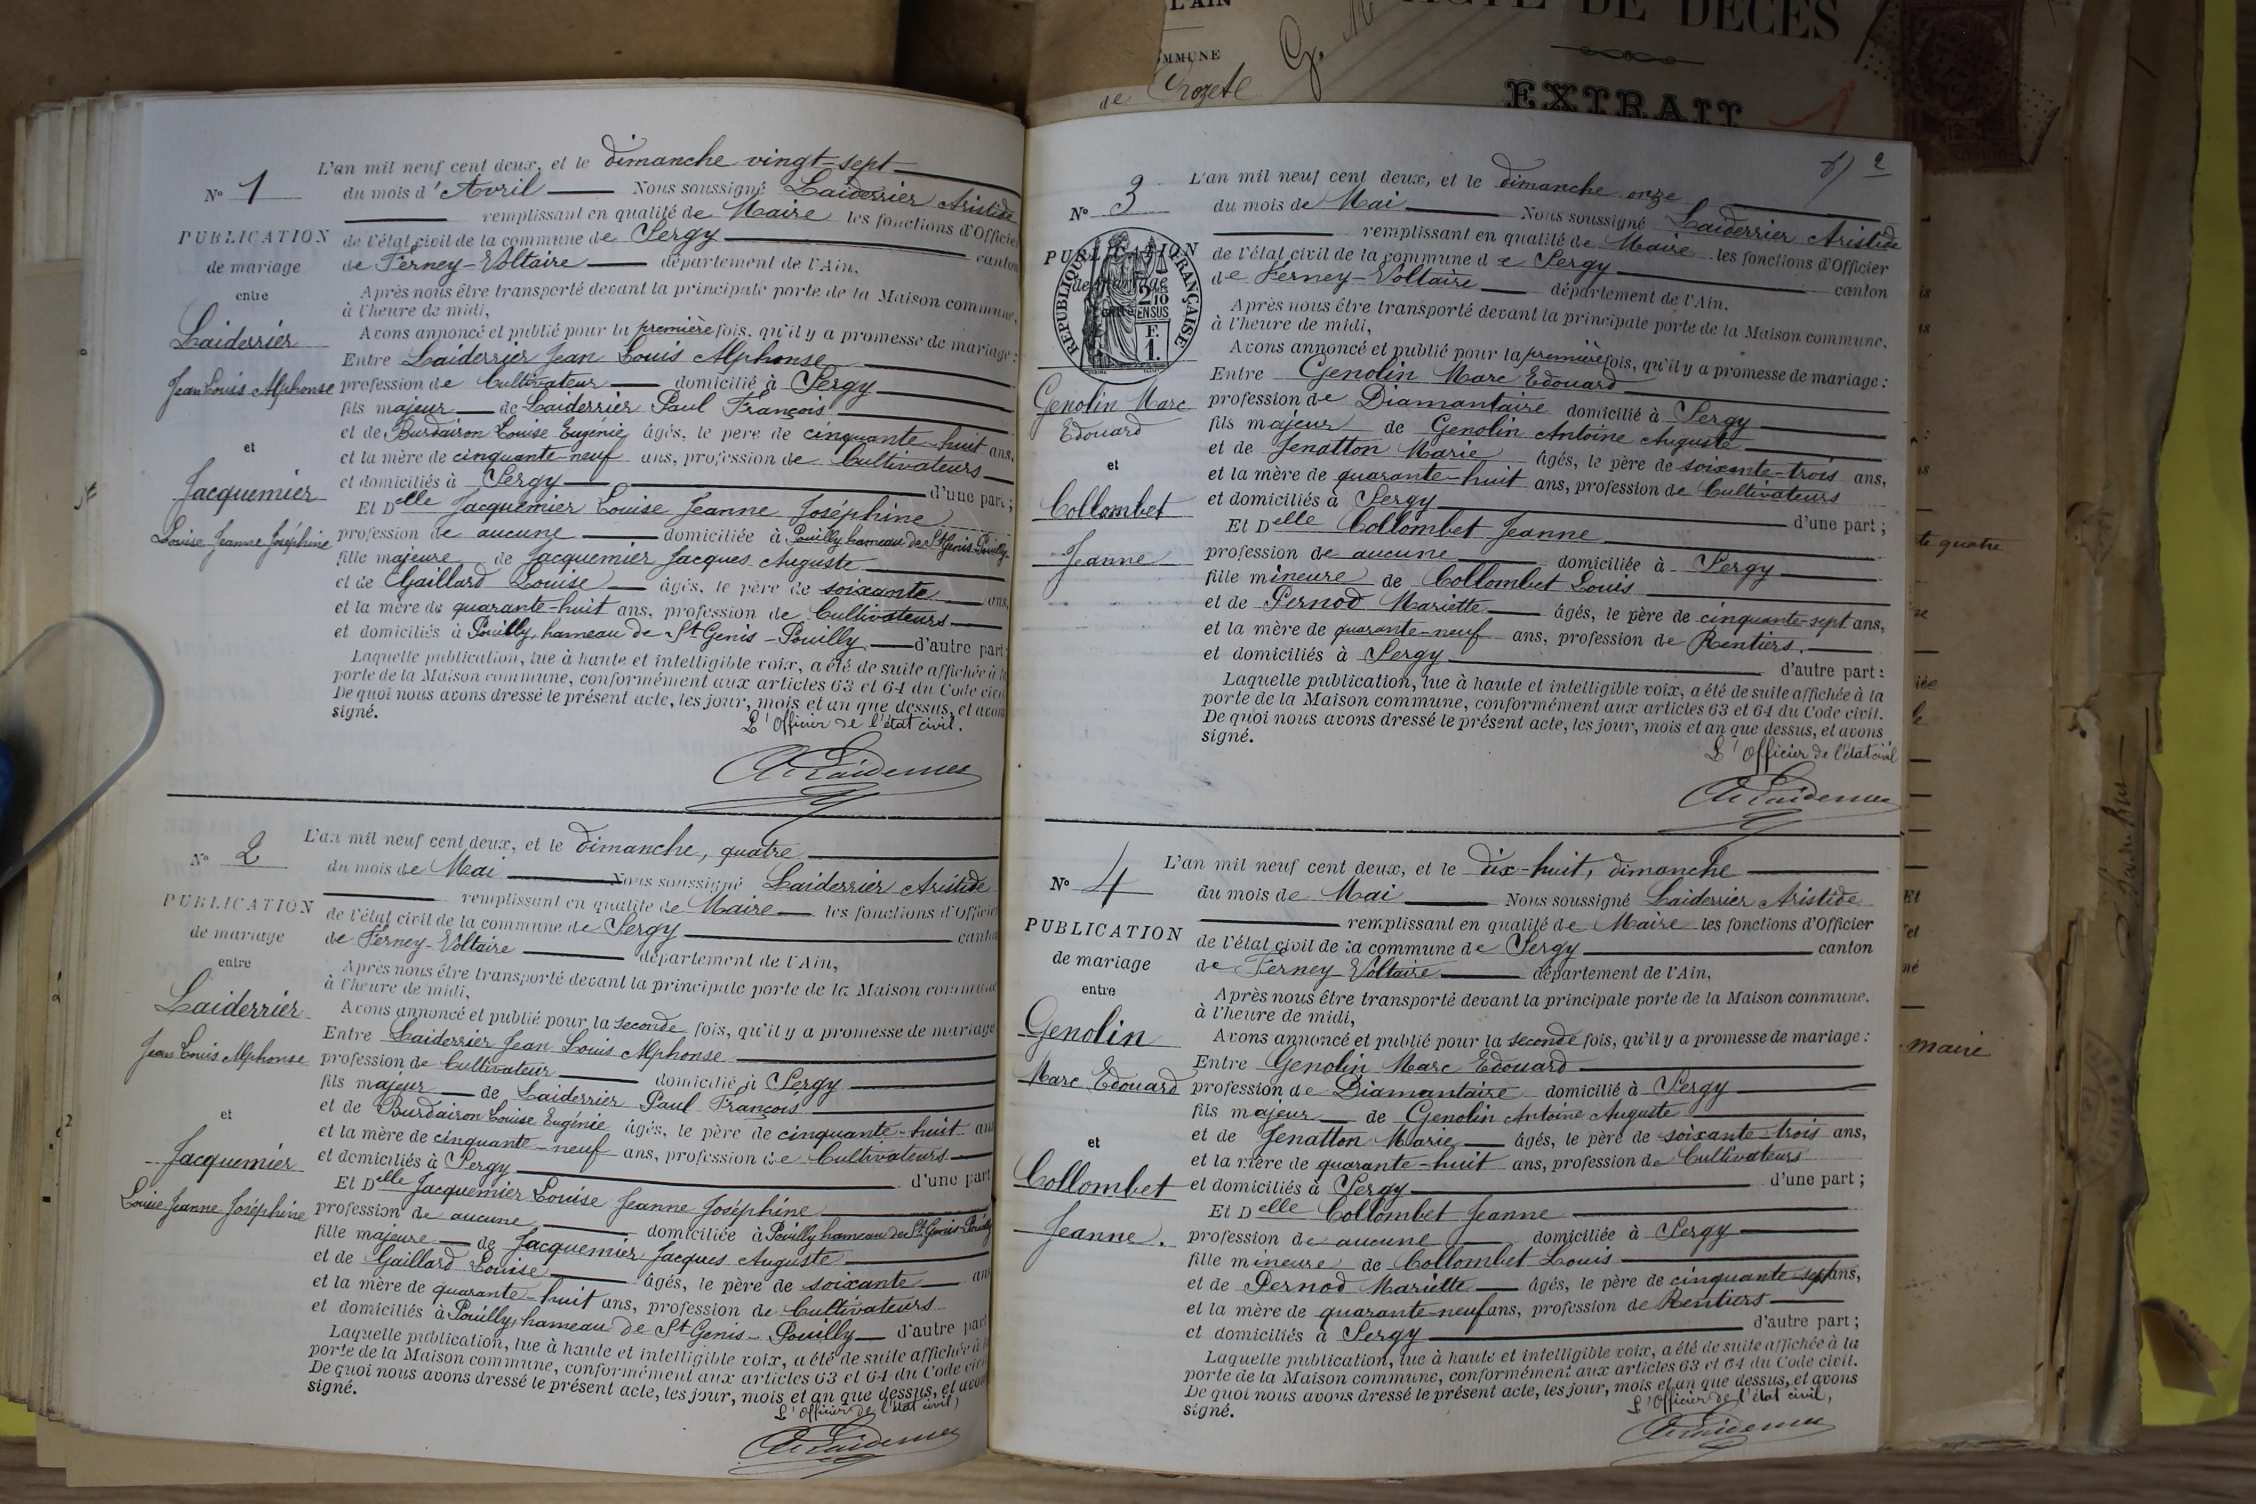 L'AIN
COMMUNE
de Crozet
ACTE DE DÉCÈS
EXTRAIT
L'an mil neuf cent deux, et le dimanche vingt-sept
No 1
du mois d'Avril Nous soussigné Laiderrier Aristide
remplissant en qualité de Maire les fonctions d'Officier
PUBLICATION
de l'état civil de la commune de Sergy canton
de mariage
de Ferney-Voltaire département de l'Ain,
entre
Après nous être transporté devant la principale porte de la Maison commune,
à l'heure de midi,
Laiderrier
Avons annoncé et publié pour la première fois, qu'il y a promesse de mariage :
Entre Laiderrier Jean Louis Alphonse
Jean Louis Alphonse
profession de Cultivateur domicilié à Sergy
fils majeur de Laiderrier Paul François
et de Burdairon Louise Eugénie âgés, le père de cinquante-huit ans,
et
et la mère de cinquante-neuf ans, profession de Cultivateurs
Jacquemier
et domiciliés à Sergy d'une part ;
Et Delle Jacquemier Louise Jeanne Joséphine
Louise Jeanne Joséphine
profession de aucune domiciliée à Pouilly hameau de St Genis-Pouilly
fille majeure de Jacquemier Jacques Auguste
et de Gaillard Louise âgés, le père de soixante ans,
et la mère de quarante-huit ans, profession de Cultivateurs
et domiciliés à Pouilly, hameau de St Genis-Pouilly d'autre part ;
Laquelle publication, lue à haute et intelligible voix, a été de suite affichée à la
porte de la Maison commune, conformément aux articles 63 et 64 du Code civil.
De quoi nous avons dressé le présent acte, les jour, mois et an que dessus, et avons
signé.
L'Officier de l'état civil.
A. Laiderrier
L'an mil neuf cent deux, et le dimanche, quatre
No 2
du mois de Mai Nous soussigné Laiderrier Aristide
remplissant en qualité de Maire les fonctions d'Officier
PUBLICATION
de l'état civil de la commune de Sergy canton
de mariage
de Ferney-Voltaire département de l'Ain,
entre
Après nous être transporté devant la principale porte de la Maison commune
à l'heure de midi,
Laiderrier
Avons annoncé et publié pour la seconde fois, qu'il y a promesse de mariage
Entre Laiderrier Jean Louis Alphonse
Jean Louis Alphonse
profession de Cultivateur domicilié à Sergy
fils majeur de Laiderrier Paul François
et de Burdairon Louise Eugénie âgés, le père de cinquante-huit ans
et
et la mère de cinquante-neuf ans, profession de Cultivateurs
Jacquemier
et domiciliés à Sergy d'une part
Et Delle Jacquemier Louise Jeanne Joséphine
Louise Jeanne Joséphine
profession de aucune domiciliée à Pouilly hameau de St Genis-Pouilly
fille majeure de Jacquemier Jacques Auguste
et de Gaillard Louise âgés, le père de soixante ans
et la mère de quarante-huit ans, profession de Cultivateurs
et domiciliés à Pouilly, hameau de St Genis-Pouilly d'autre part
Laquelle publication, lue à haute et intelligible voix, a été de suite affichée à la
porte de la Maison commune, conformément aux articles 63 et 64 du Code civil
De quoi nous avons dressé le présent acte, les jour, mois et an que dessus, et avons
signé.
L'Officier de l'état civil,
A. Laiderrier
2
L'an mil neuf cent deux, et le dimanche onze
No 3
du mois de Mai Nous soussigné Laiderrier Aristide
remplissant en qualité de Maire les fonctions d'Officier
PUBLICATION
de l'état civil de la commune de Sergy canton
de mariage
RÉPUBLIQUE FRANÇAISE
2/10 EN SUS
F.
1.
de Ferney-Voltaire département de l'Ain.
Après nous être transporté devant la principale porte de la Maison commune.
à l'heure de midi,
Avons annoncé et publié pour la première fois, qu'il y a promesse de mariage :
Entre Genolin Marc Edouard
Genolin Marc
Edouard
profession de Diamantaire domicilié à Sergy
fils majeur de Genolin Antoine Auguste
et
et de Jenatton Marie âgés, le père de soixante-trois ans,
et la mère de quarante-huit ans, profession de Cultivateurs
Collombet
et domiciliés à Sergy d'une part ;
Et Delle Collombet Jeanne
Jeanne
profession de aucune domiciliée à Sergy
fille mineure de Collombet Louis
et de Pernod Mariette âgés, le père de cinquante-sept ans,
et la mère de quarante-neuf ans, profession de Rentiers.
et domiciliés à Sergy d'autre part :
Laquelle publication, lue à haute et intelligible voix, a été de suite affichée à la
porte de la Maison commune, conformément aux articles 63 et 64 du Code civil.
De quoi nous avons dressé le présent acte, les jour, mois et an que dessus, et avons
signé.
L'Officier de l'état civil
A. Laiderrier
L'an mil neuf cent deux, et le dix-huit, dimanche
No 4
du mois de Mai Nous soussigné Laiderrier Aristide
remplissant en qualité de Maire les fonctions d'Officier
PUBLICATION
de l'état civil de la commune de Sergy canton
de mariage
de Ferney-Voltaire département de l'Ain,
entre
Après nous être transporté devant la principale porte de la Maison commune.
à l'heure de midi,
Genolin
Avons annoncé et publié pour la seconde fois, qu'il y a promesse de mariage :
Entre Genolin Marc Edouard
Marc Edouard
profession de Diamantaire domicilié à Sergy
fils majeur de Genolin Antoine Auguste
et
et de Jenatton Marie âgés, le père de soixante-trois ans,
et la mère de quarante-huit ans, profession de Cultivateurs
Collombet
et domiciliés à Sergy d'une part ;
Et Delle Collombet Jeanne
Jeanne.
profession de aucune domiciliée à Sergy
fille mineure de Collombet Louis
et de Pernod Mariette âgés, le père de cinquante-sept ans,
et la mère de quarante-neuf ans, profession de Rentiers
et domiciliés à Sergy d'autre part ;
Laquelle publication, lue à haute et intelligible voix, a été de suite affichée à la
porte de la Maison commune, conformément aux articles 63 et 64 du Code civil.
De quoi nous avons dressé le présent acte, les jour, mois et an que dessus, et avons
signé.
L'Officier de l'état civil,
A. Laiderrier
quatre
maire